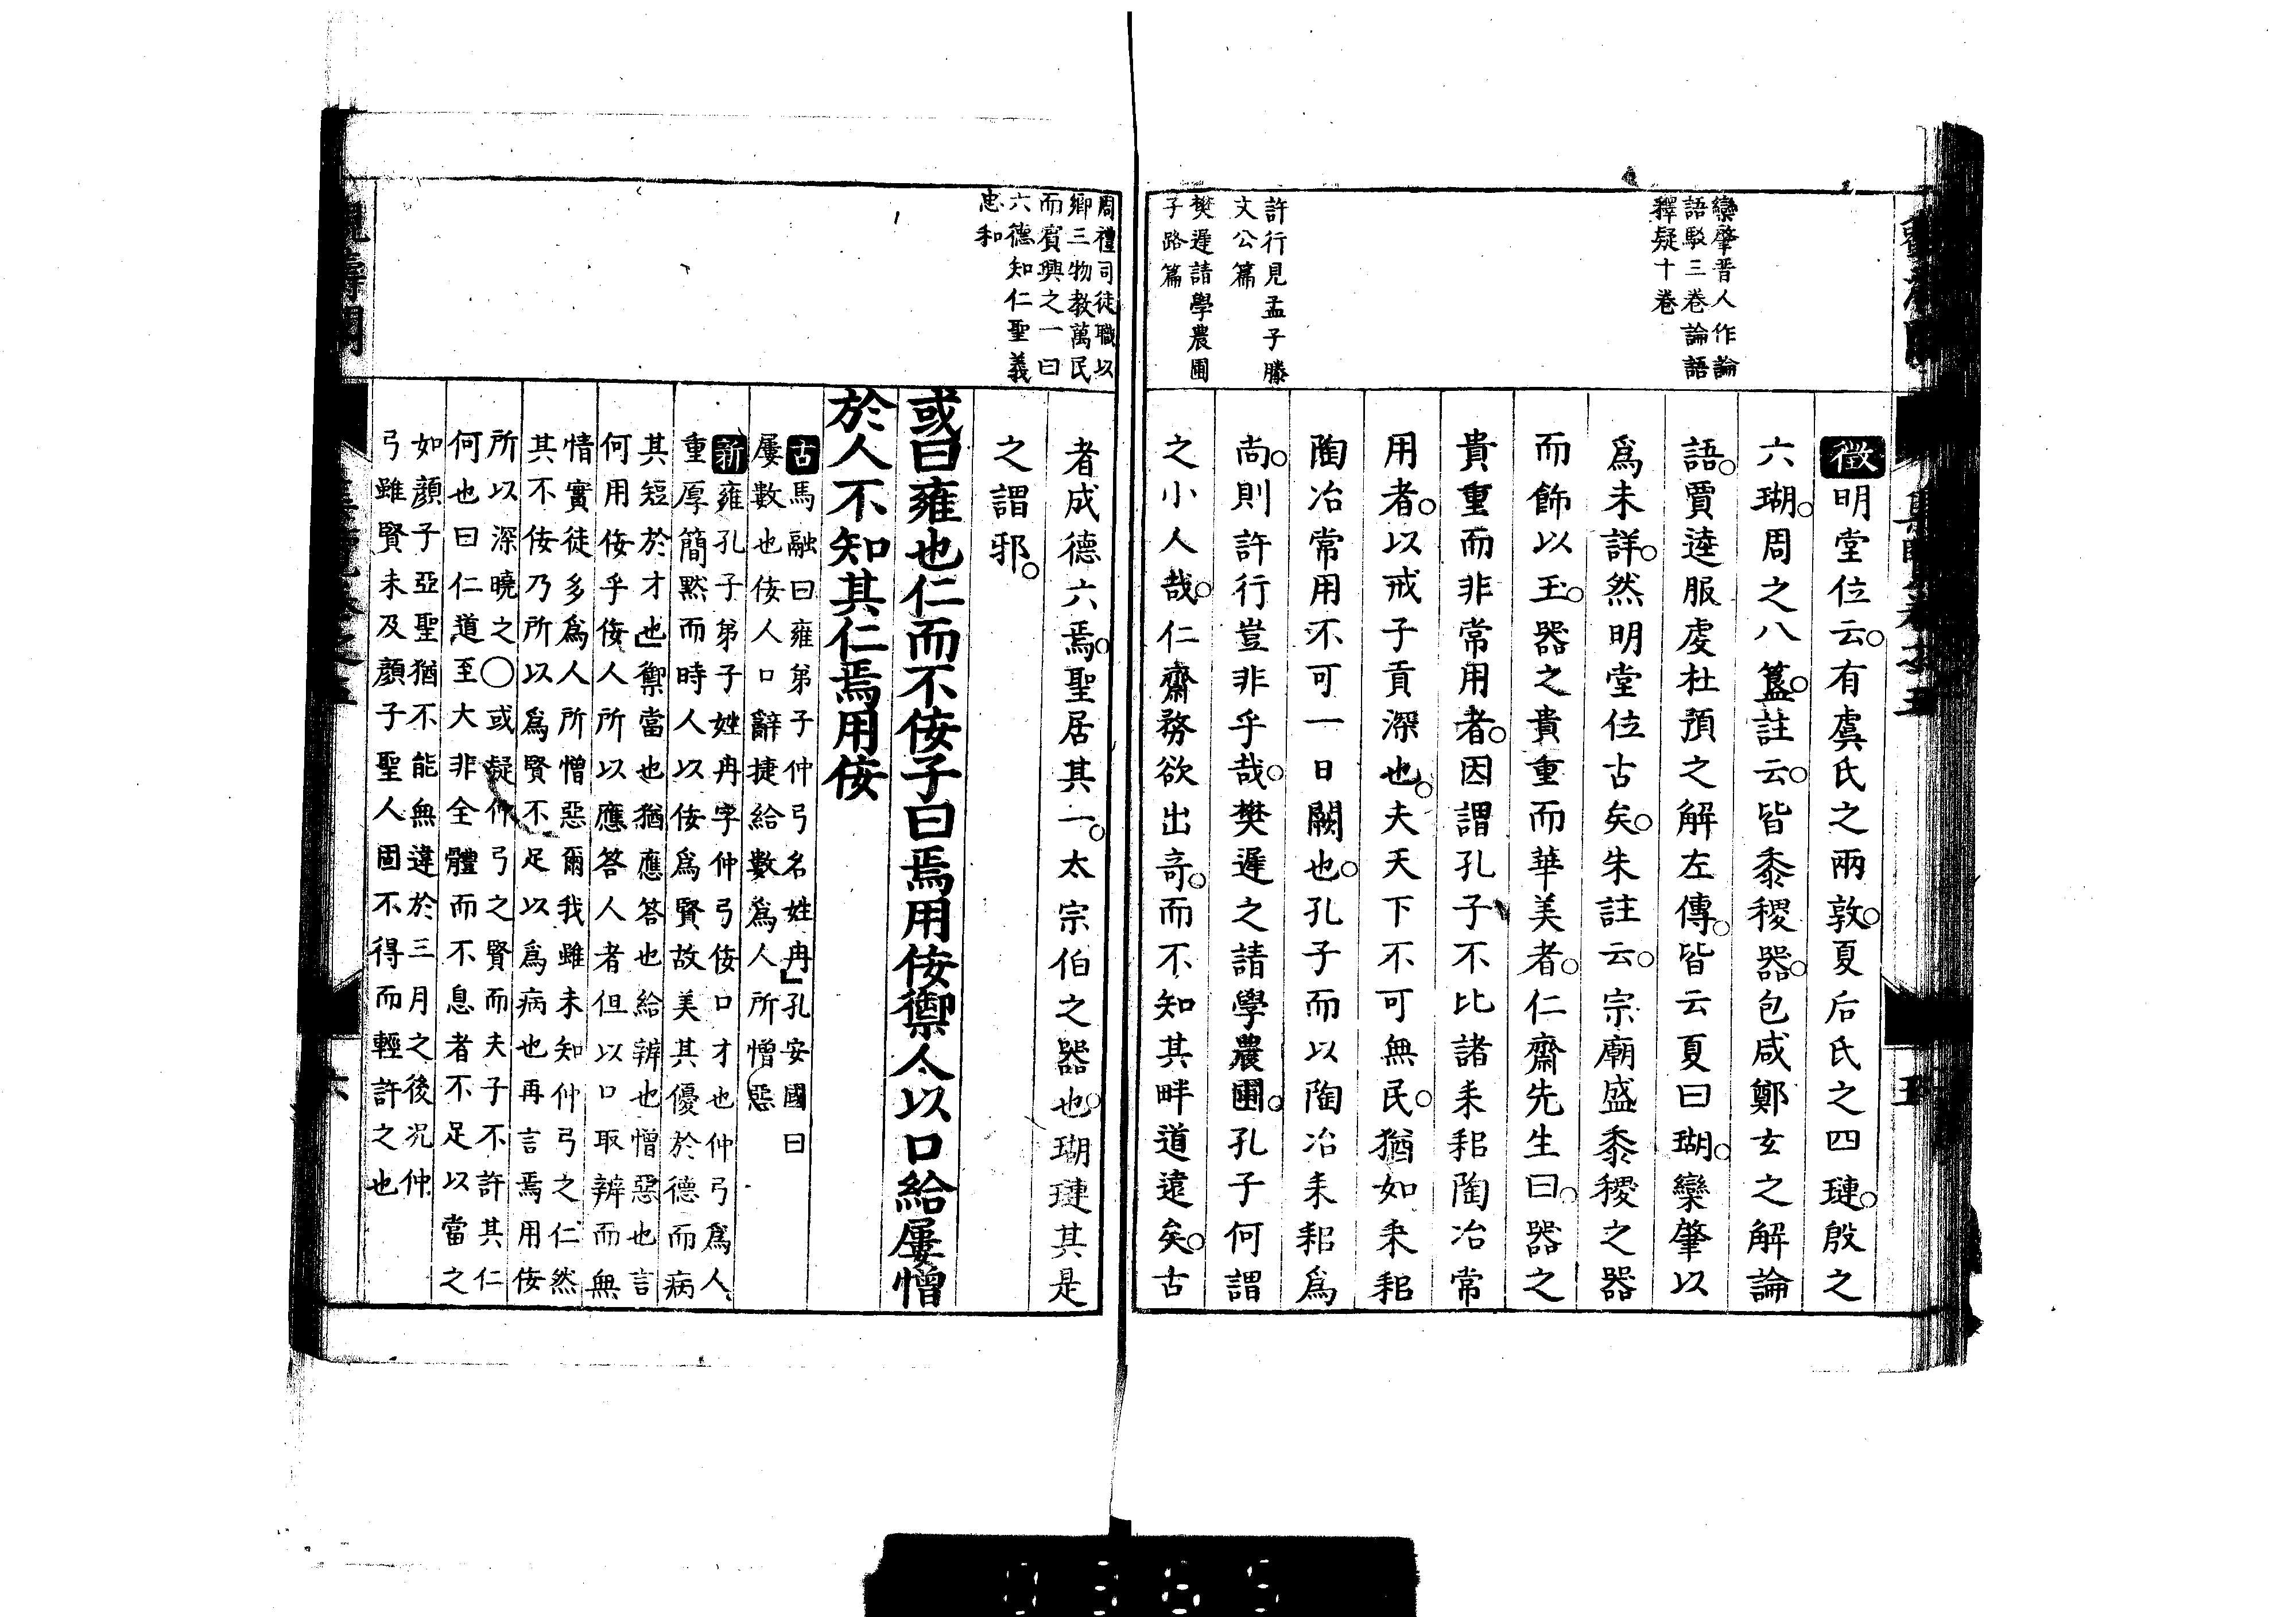 欒肇晋人作論
語駁三卷論語
釋疑十卷
許行見孟子滕
文公篇
樊遲請學農圃
子路篇
徵明堂位云。有虞氏之兩敦。夏后氏之四璉。殷之
六瑚。周之八簋。註云。皆黍稷器。包咸鄭玄之解論
語。賈逵服虔杜預之解左傳。皆云夏曰瑚。欒肇以
爲未詳。然明堂位古矣。朱註云。宗廟盛黍稷之器
而飾以玉。器之貴重而華美者。仁齋先生曰。器之
貴重而非常用者。因謂孔子不比諸耒耜陶冶常
用者。以戒子貢深也。夫天下不可無民。猶如耒耜
陶冶常用不可一日闕也。孔子而以陶冶耒耜爲
尚。則許行豈非乎哉。樊遲之請學農圃。孔子何謂
之小人哉。仁齋務欲出奇。而不知其畔道遠矣。古
周禮司徒職以
鄉三物教萬民
而賓興之一曰
六德知仁聖義
忠和
者成德六焉。聖居其一。太宗伯之器也。瑚璉其是
之謂邪。
或曰雍也仁而不佞子曰焉用佞禦人以口給屢憎
於人不知其仁焉用佞
古馬融曰雍弟子仲弓名姓冉孔安國曰
屢數也佞人口辭捷給數爲人所憎惡
新雍孔子弟子姓冉字仲弓佞口才也仲弓爲人
重厚簡默而時人以佞爲賢故美其優於德而病
其短於才也禦當也猶應答也給辨也憎惡也言
何用佞乎佞人所以應答人者但以口取辨而無
情實徒多爲人所憎惡爾我雖未知仲弓之仁然
其不佞乃所以爲賢不足以爲病也再言焉用佞
所以深曉之〇或疑仲弓之賢而夫子不許其仁
何也曰仁道至大非全體而不息者不足以當之
如顏子亞聖猶不能無違於三月之後况仲
弓雖賢未及顏子聖人固不得而輕許之也